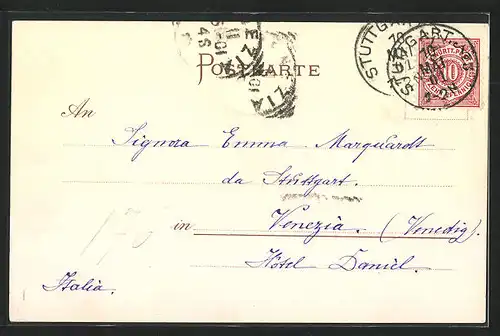 STUTTGART
STUTTGART
10
MAI
POSTKARTE
10
An
Signora Emma Marquardt
da Stuttgart.
in Venezia. (Venedig).
Hôtel Daniel.
Italia.